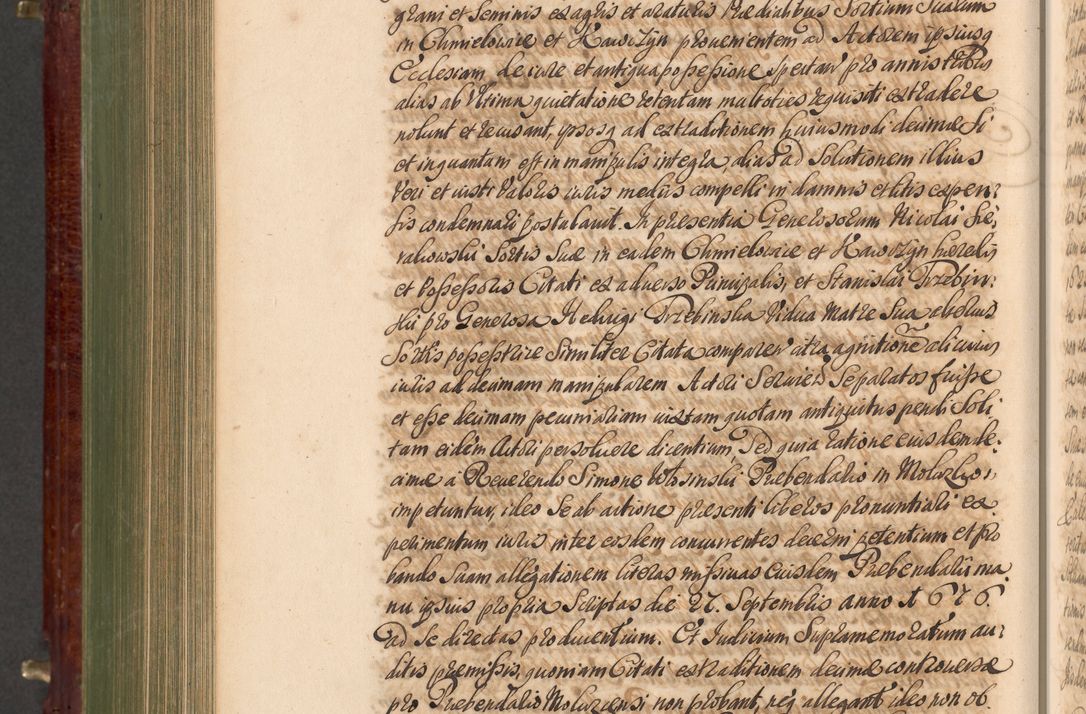 grani et Seminis ex agris et araturis Prædialibus Sortium Suarum
in Chmielowice et Kawczyn provenientem ad Actorem ipsiusq
Ecclesiam de iure et antiqua possessione spectan pro annis tribus
alias ab Vltima quietatione retentam multoties requisiti extradere
nolunt et recusant, ipsosq ad extraditionem huiusmodi decimæ Si
et inquantum est in manipulis integra, alias ad Solutionem illius
Veri et iusti Valoris iuris medijs compelli in damnis et litis expen:
sis condemnari postulavit. In præsentia Generosorum Nicolai Sie,
rakowski Sortis Suæ in eadem Chmielowice et Kawczyn hæredis
et Possessoris Citati ex adverso Principalis, et Stanislai Trzebin:
ski pro Generosa Hedvigi Trzebinska Vidua Matre Sua alterius
Sortis possestrice Similiter Citata comparen citra agnitionem alicuius
iuris ad decimam manipularem Actori Servien Separatos fuisse
et esse decimam pecuniariam iuxtam quotam antiquitus pendi Soli
tam eidem Actori persolvere dicentium, Sed quia ratione eiusdem de,
cimæ a Reverendo Simone Prebendario in Mokrzko
impetuntur, ideo Se ab actione præsenti liberos pronuntiari ex
perimentum iuris inter eosdem concurrentes decerni petentium et pro
bando Suam allegationem literas missivas eiusdem Præbendarii ma
nu ipsius propria Scriptas die 27. Septembris anno 1676.
ad Se directas producentium. Et Iudicium Supramemoratum au:
ditis præmissis, quoniam Citati extraditionem decimæ controversæ
pro Præbendario non probant, neq allegant ideo non ob.